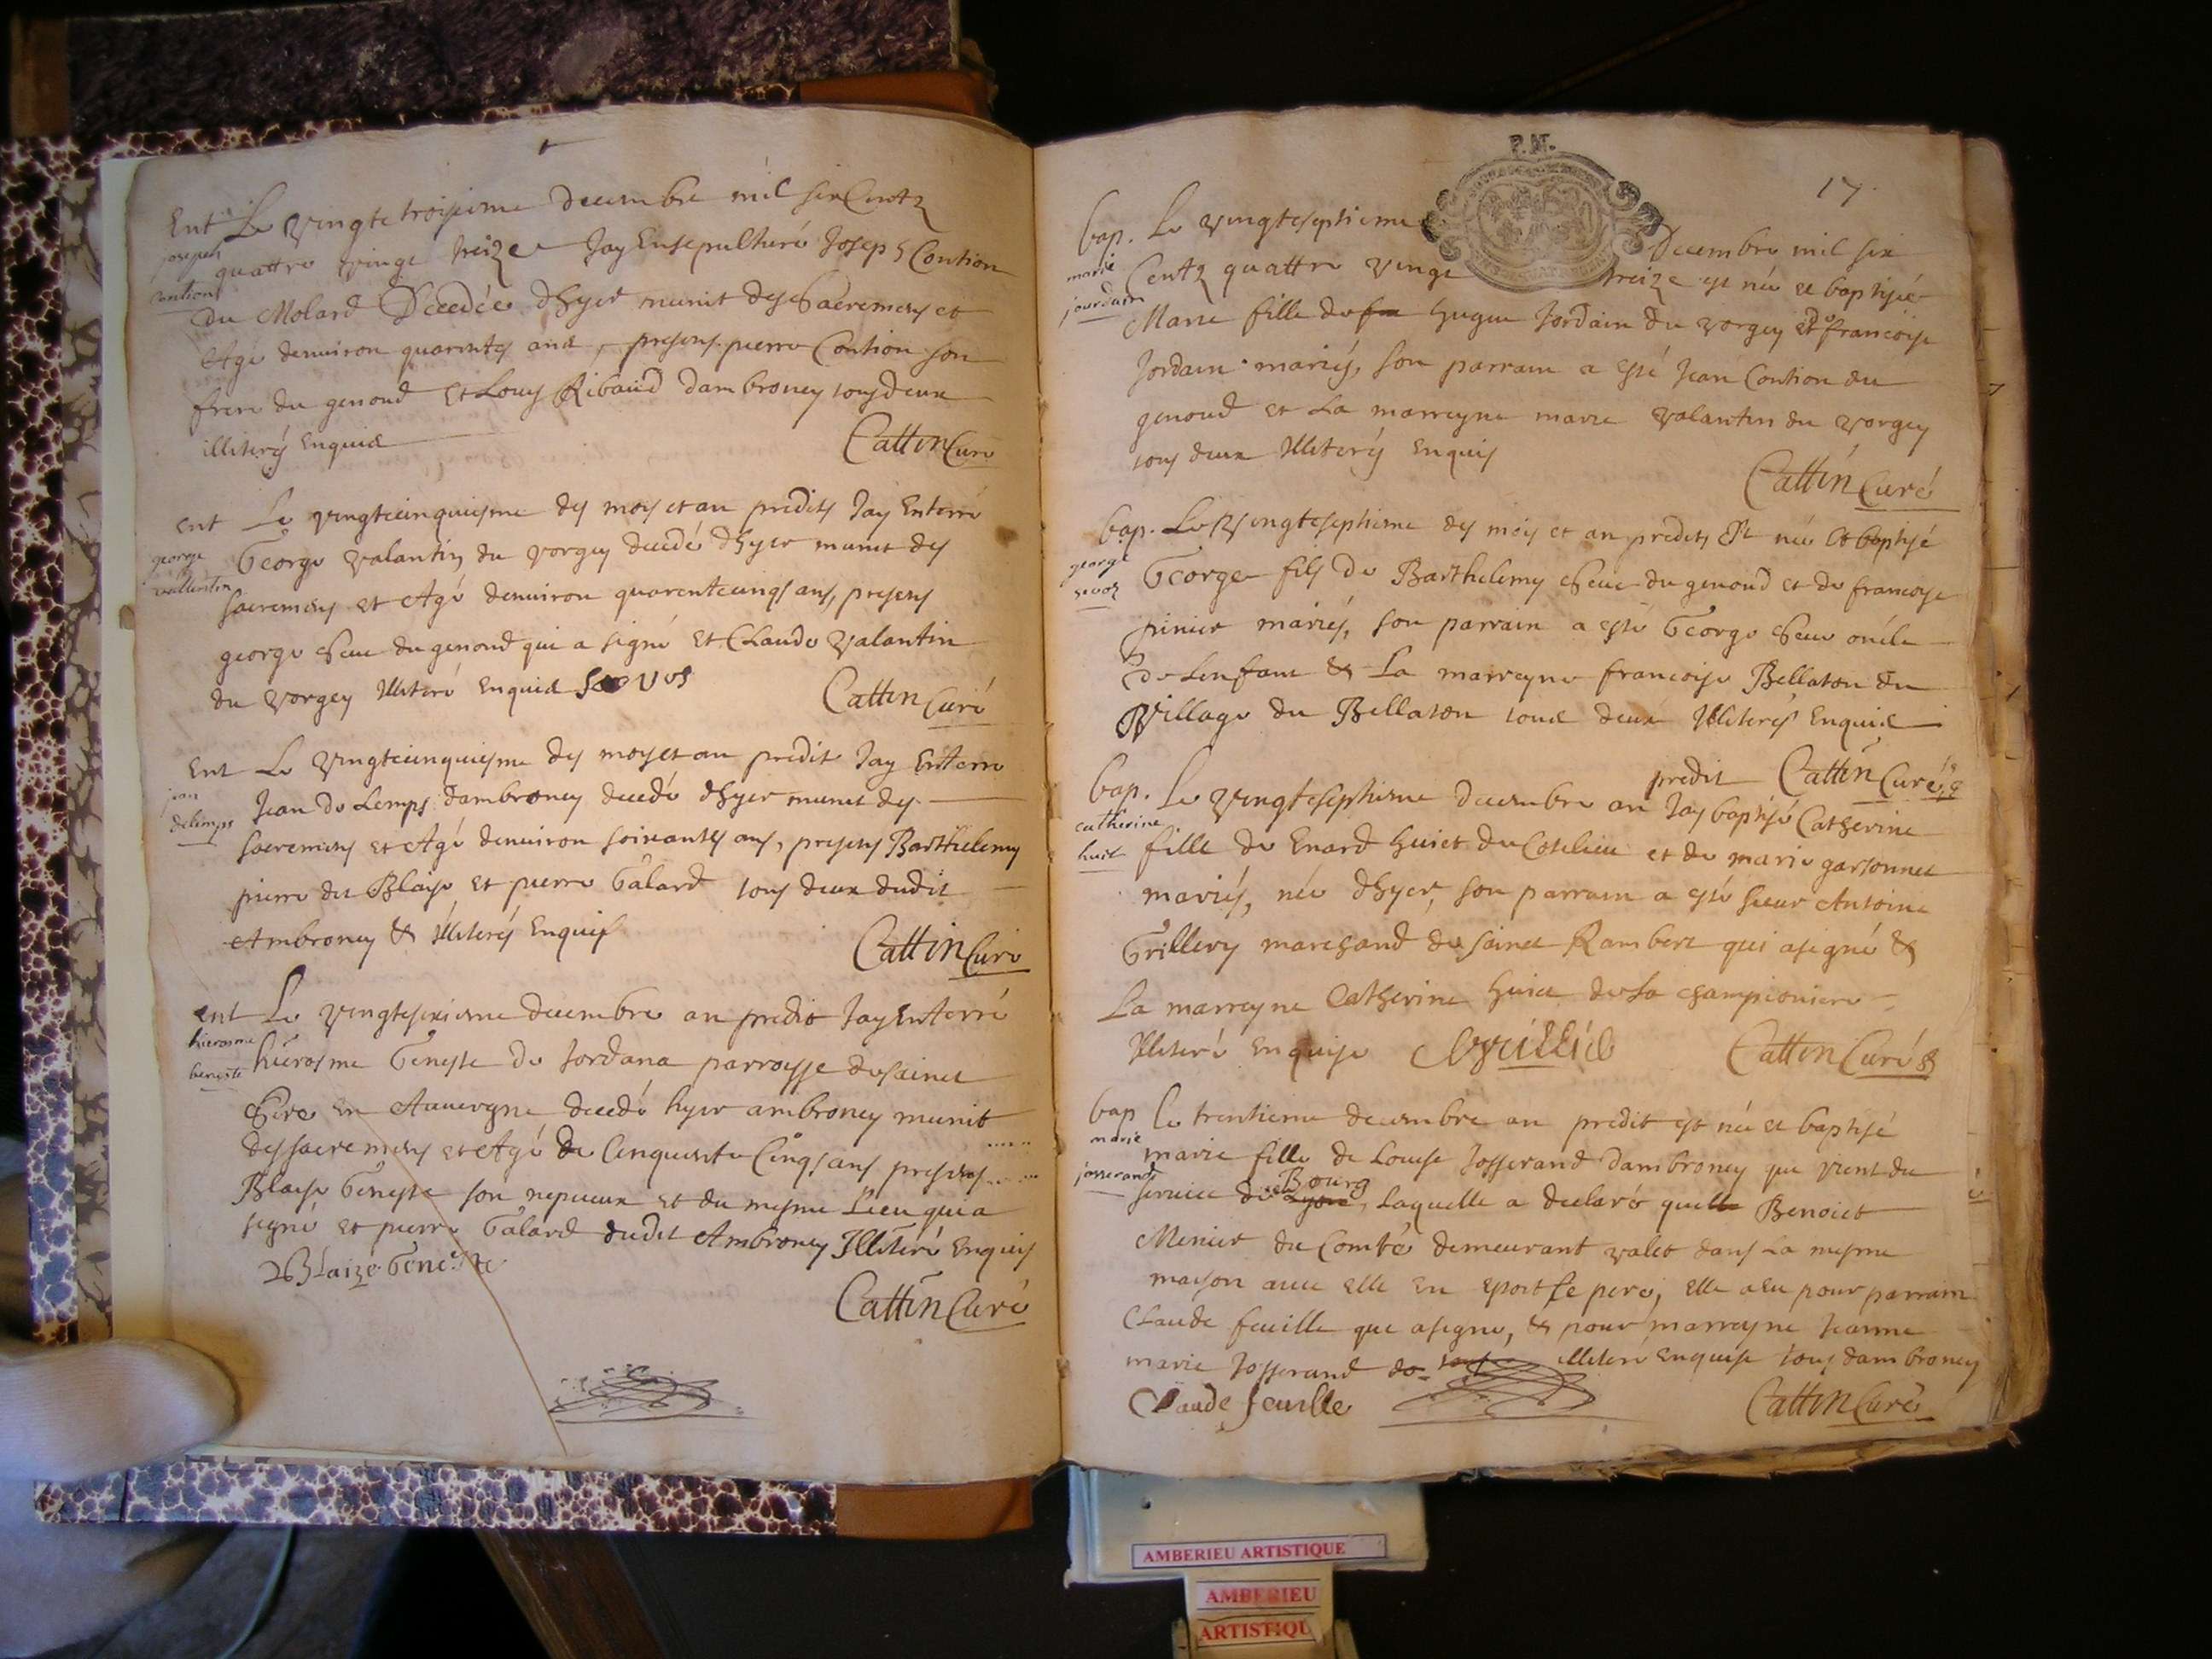 Ent Le vingtetroisieme decembre mil six Centz
joseph
contion
quattre vingt treize Jay Ensepulturé Joseph Contion
du Molard Décedée dhyer munit des Sacremens et
Agé denuiron quarentes ans, presens pierre Contion son
frere du genoud et Louys Ribaud dambroney tous deux
illiterés Enquis
Cattin Curé
ent Le vingtcinquiesme des mois et an predits Jay Enterré
george
vallentin
George valantin du vorgey decedé dhyer munit des
sacremens et Agé denuiron quarentecinqs ans, presens
george seue du genoud qui a signé et Claude valantin
du vorgey Illiteré Enquis
Cattin Curé
Ent Le vingtcinquiesme des moys et an predits Jay Enterre
jean
delemps
Jean de Lemps dambroney decedé dhyer munit des
sacremens et Agé denuiron soixantes ans, presens Barthelemy
pierre dit Blaise et pierre Galard tous deux dudit
Ambroney & Illiterés Enquis
Cattin Curé
ent Le vingtesixieme decembre an predit Jay Enterré
hierosme
geneste
hierosme Geneste de Jordana parroisse de sainct
en Auuergne decedé hyer ambroney munit
des sacremens et Agé de Cinquente Cinqs ans presens
Blaise Geneste son nepueux et du mesme Lieu qui a
signé et pierre Galard dudit Ambroney Illiteré Enquis
Blaize Geneste
Cattin Curé
P.M.
17.
bap. Le vingteseptieme Decembre mil six
marie
jourdain
Centz quattre vingt treize est née et baptisée
Marie fille de feu hugue Jordain du vorgey et de francoise
Jordain mariés, son parrain a esté Jean Contion du
genoud et La marreyne marie valantin du vorgey
tous deux Illiterés Enquis
Cattin Curé
bap. Le Vingteseptieme des mois et an predits Est né Et baptisé
george
seuoz
George fils de Barthelemy seue du genoud et de francoyse
mariés, son parrain a esté George seue oncle
de Lenfant & La marreyne francoise Bellaton du
Village du Bellaton tous deux Illiterés Enquis
Cattin Curé
bap. Le vingteseptieme decembre an predit Jay baptisé Catherine
catherine
huict
fille de Enard huict du Cotelieu et de marie garsonnet
mariés, née dhyer, son parrain a esté sieur Antoine
Grillery marchand de sainct Rambert qui a signé &
La marreyne Catherine huict de La championiere
Illiteré Enquise
Cattin Curé
bap Le trentieme decembre an predit est née et baptisé
marie
josserand
marie fille de Louise Josserand dambroney qui vient du
seruice de Bourg, Laquelle a declaré que Benoict
Menier du Comté demeurant valet dans La mesme
mayson auec elle En Estoit Le pere, elle a eu pour parrain
Claude feuille qui a signé, & pour marreyne Jeanne
marie Josserand illiteré Enquise tous dambroney
Claude feuille
Cattin Curé
AMBERIEU ARTISTIQUE
AMBERIEU
ARTISTIQU